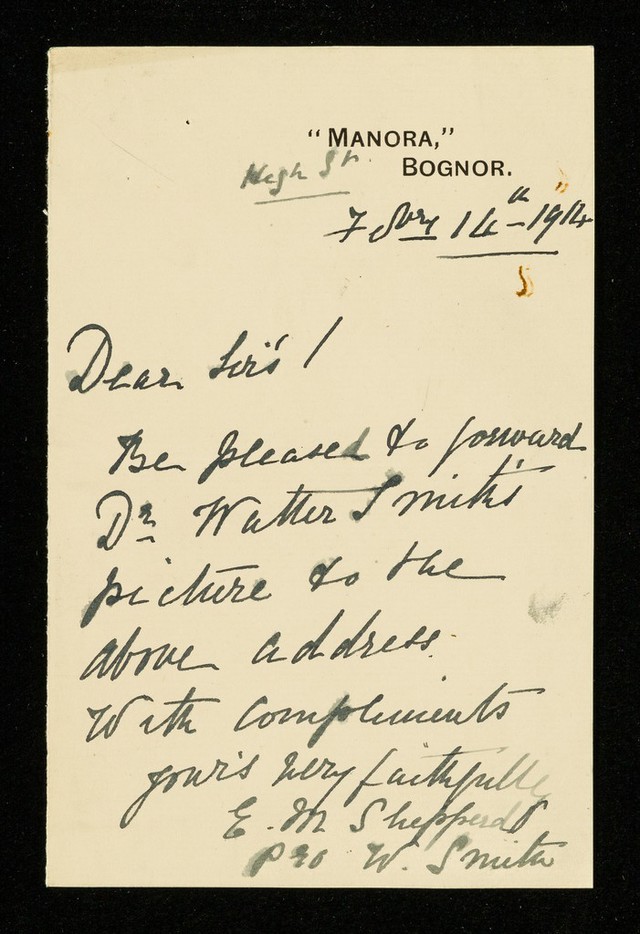 "MANORA,"
BOGNOR.
High St.
14th - 1914
Dear Sirs!
Be pleased to forward
Dr Walter Smith's
picture to the
above address.
With compliments
yours very faithfully
E. M. Shepperd
pro W. Smith